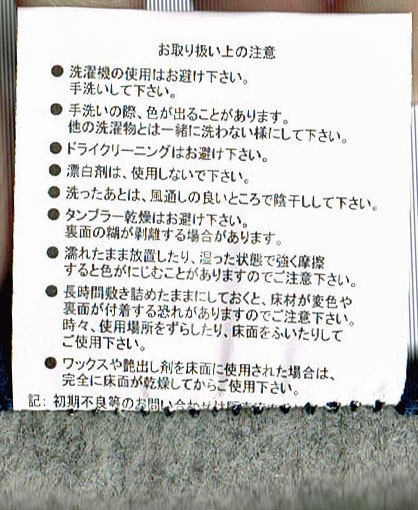 お取り扱い上の注意
●洗濯機の使用はお避け下さい。
手洗いして下さい。
●手洗いの際、色が出ることがあります。
他の洗濯物とは一緒に洗わない様にして下さい。
●ドライクリーニングはお避け下さい。
●漂白剤は、使用しないで下さい。
●洗ったあとは、風通しの良いところで陰干しして下さい。
●タンブラー乾燥はお避け下さい。
裏面の糊が剥離する場合があります。
●濡れたまま放置したり、湿った状態で強く摩擦
すると色がにじむことがありますのでご注意下さい。
●長時間敷き詰めたままにしておくと、床材が変色や
裏面が付着する恐れがありますのでご注意下さい。
時々、使用場所をずらしたり、床面をふいたりして
ご使用下さい。
●ワックスや艶出し剤を床面に使用された場合は、
完全に床面が乾燥してからご使用下さい。
記:初期不良等のお問い合わせは